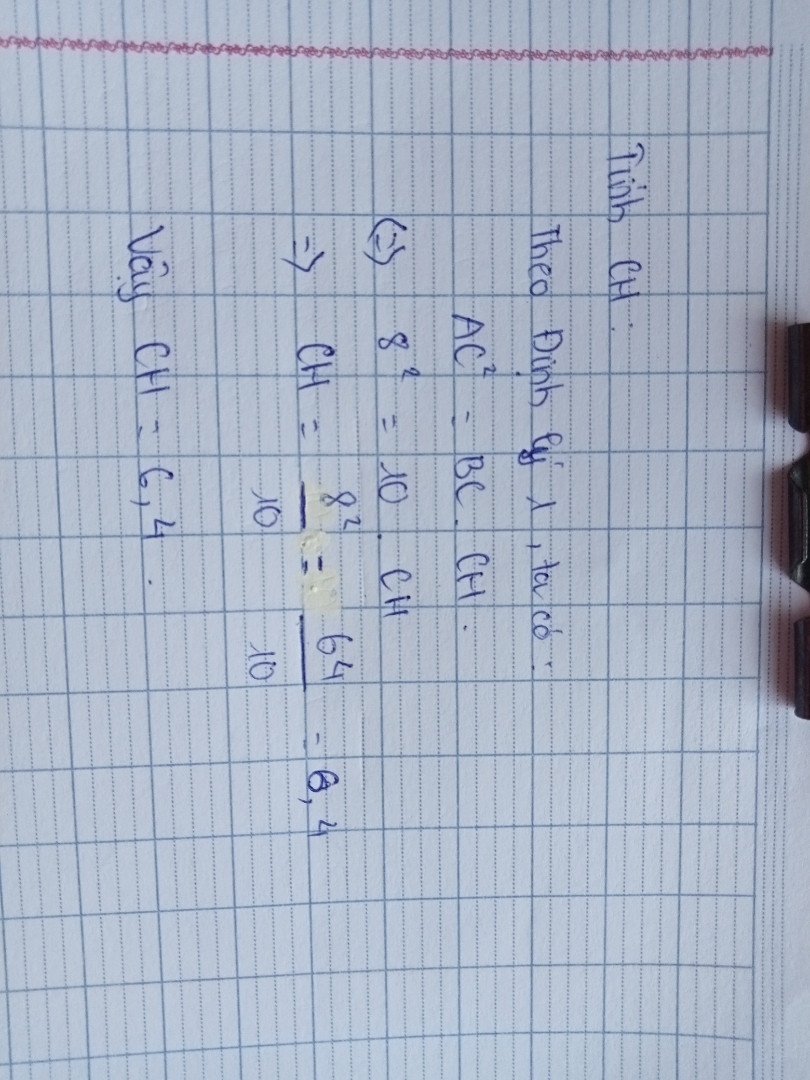 Tính CH :
Theo Định lý 1, ta có :
AC² = BC . CH .
(=) 8² = 10 . CH
=> CH = 8²/10 = 64/10 = 6,4
Vậy CH = 6,4 .